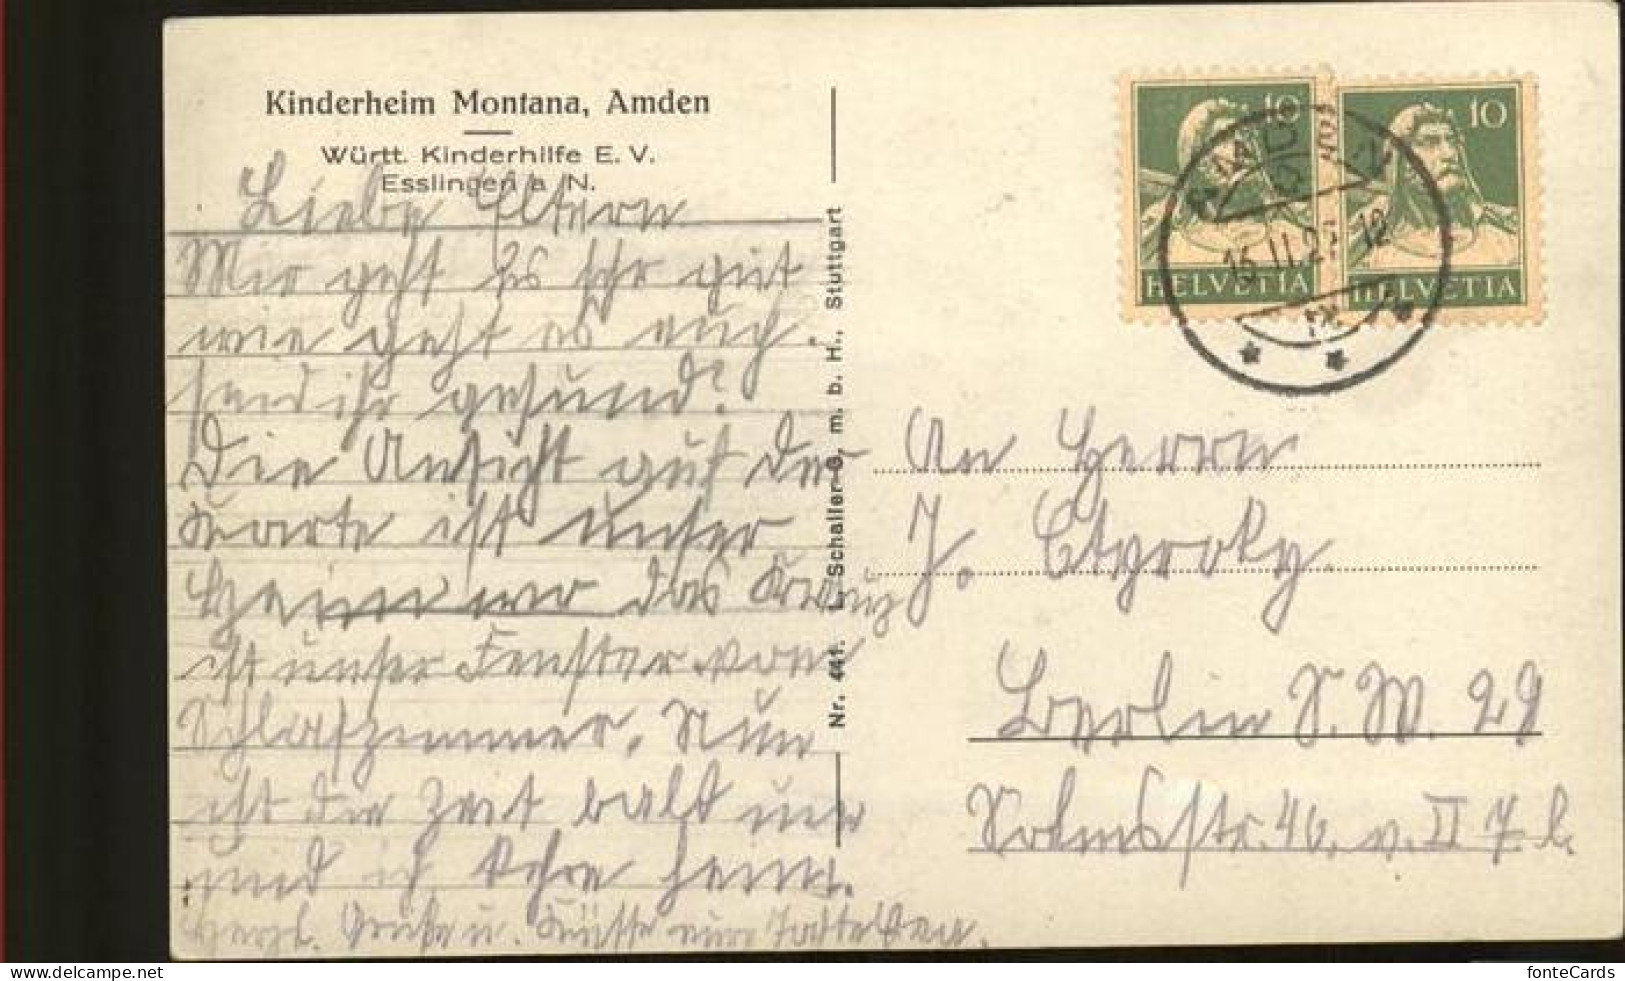 Kinderheim Montana, Amden
Württ. Kinderhilfe E. V.
Esslingen a N.
Liebe Eltern
Mir geht es sehr gut
wie geht es euch.
seid ihr gesund?
Die Ansicht auf der
Karte ist unser
Heim wo das Kreuz
ist unser Fenster vom
Schlafzimmer. Nun
ist die Zeit bald um
und ich kehre heim.
Herzl. Grüße u. Küsse eure
Nr. 441. L. Schaller-G. m. b. H., Stuttgart
10
10
HELVETIA
HELVETIA
15. II. 2 12
An Herrn
J.
Berlin S. W. 29
Solmsstr. 46. v. II
delcampe.net
fonteCards